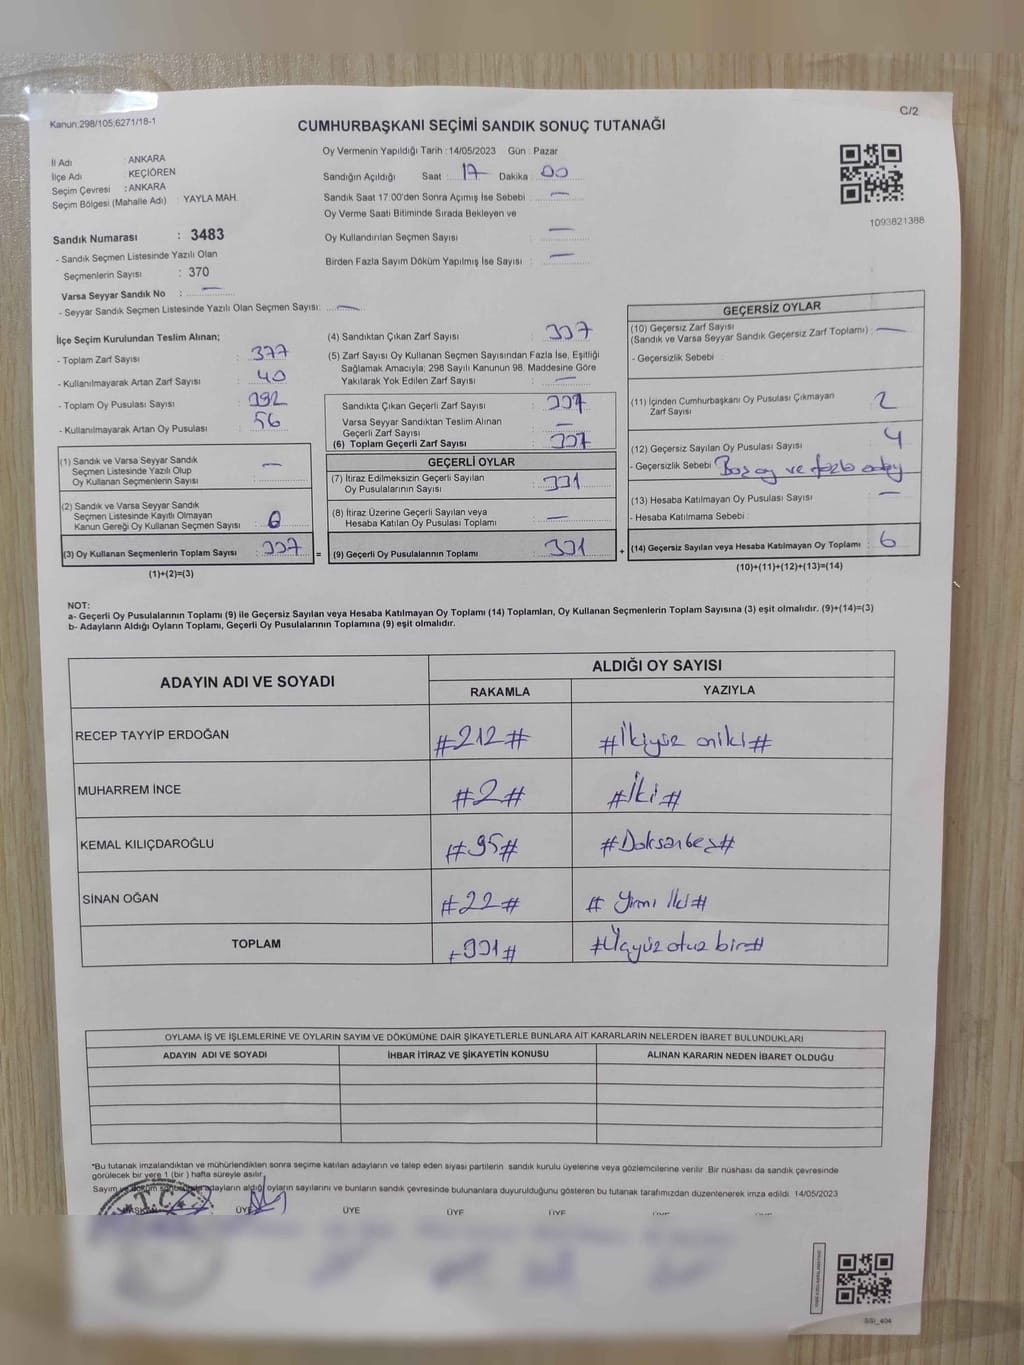 Kanun:298/105;6271/18-1
C/2
CUMHURBAŞKANI SEÇİMİ SANDIK SONUÇ TUTANAĞI
Oy Vermenin Yapıldığı Tarih : 14/05/2023 Gün : Pazar
İl Adı : ANKARA
İlçe Adı : KEÇİÖREN
Seçim Çevresi : ANKARA
Seçim Bölgesi (Mahalle Adı) : YAYLA MAH.
Sandığın Açıldığı Saat : 17 Dakika : 00
Sandık Saat 17:00'den Sonra Açımış İse Sebebi : —
Oy Verme Saati Bitiminde Sırada Bekleyen ve
Oy Kullandırılan Seçmen Sayısı : —
Birden Fazla Sayım Döküm Yapılmış İse Sayısı : —
1093821388
Sandık Numarası : 3483
- Sandık Seçmen Listesinde Yazılı Olan
Seçmenlerin Sayısı : 370
Varsa Seyyar Sandık No : —
- Seyyar Sandık Seçmen Listesinde Yazılı Olan Seçmen Sayısı: —
İlçe Seçim Kurulundan Teslim Alınan;
- Toplam Zarf Sayısı : 377
- Kullanılmayarak Artan Zarf Sayısı : 40
- Toplam Oy Pusulası Sayısı : 392
- Kullanılmayarak Artan Oy Pusulası : 56
(1) Sandık ve Varsa Seyyar Sandık
Seçmen Listesinde Yazılı Olup
Oy Kullanan Seçmenlerin Sayısı : —
(2) Sandık ve Varsa Seyyar Sandık
Seçmen Listesinde Kayıtlı Olmayan
Kanun Gereği Oy Kullanan Seçmen Sayısı : 0
(3) Oy Kullanan Seçmenlerin Toplam Sayısı : 337 =
(1)+(2)=(3)
(4) Sandıktan Çıkan Zarf Sayısı : 337
(5) Zarf Sayısı Oy Kullanan Seçmen Sayısından Fazla İse, Eşitliği
Sağlamak Amacıyla; 298 Sayılı Kanunun 98. Maddesine Göre
Yakılarak Yok Edilen Zarf Sayısı : —
Sandıkta Çıkan Geçerli Zarf Sayısı : 337
Varsa Seyyar Sandıktan Teslim Alınan
Geçerli Zarf Sayısı : —
(6) Toplam Geçerli Zarf Sayısı : 337
GEÇERLİ OYLAR
(7) İtiraz Edilmeksizin Geçerli Sayılan
Oy Pusulalarının Sayısı : 331
(8) İtiraz Üzerine Geçerli Sayılan veya
Hesaba Katılan Oy Pusulası Toplamı : —
(9) Geçerli Oy Pusulalarının Toplamı : 331 +
GEÇERSİZ OYLAR
(10) Geçersiz Zarf Sayısı
(Sandık ve Varsa Seyyar Sandık Geçersiz Zarf Toplamı) : —
- Geçersizlik Sebebi :
(11) İçinden Cumhurbaşkanı Oy Pusulası Çıkmayan
Zarf Sayısı : 2
(12) Geçersiz Sayılan Oy Pusulası Sayısı : 4
- Geçersizlik Sebebi : Boş oy ve fazla aday
(13) Hesaba Katılmayan Oy Pusulası Sayısı : —
- Hesaba Katılmama Sebebi :
(14) Geçersiz Sayılan veya Hesaba Katılmayan Oy Toplamı : 6
(10)+(11)+(12)+(13)=(14)
NOT:
a- Geçerli Oy Pusulalarının Toplamı (9) ile Geçersiz Sayılan veya Hesaba Katılmayan Oy Toplamı (14) Toplamları, Oy Kullanan Seçmenlerin Toplam Sayısına (3) eşit olmalıdır. (9)+(14)=(3)
b- Adayların Aldığı Oyların Toplamı, Geçerli Oy Pusulalarının Toplamına (9) eşit olmalıdır.
ADAYIN ADI VE SOYADI ALDIĞI OY SAYISI
RAKAMLA YAZIYLA
RECEP TAYYİP ERDOĞAN #212# #İkiyüz oniki#
MUHARREM İNCE #2# #İki#
KEMAL KILIÇDAROĞLU #95# #Doksanbeş#
SİNAN OĞAN #22# #Yirmi İki#
TOPLAM #331# #Üçyüz otuz bir#
OYLAMA İŞ VE İŞLEMLERİNE VE OYLARIN SAYIM VE DÖKÜMÜNE DAİR ŞİKAYETLERLE BUNLARA AİT KARARLARIN NELERDEN İBARET BULUNDUKLARI
ADAYIN ADI VE SOYADI İHBAR İTİRAZ VE ŞİKAYETİN KONUSU ALINAN KARARIN NEDEN İBARET OLDUĞU
*Bu tutanak imzalandıktan ve mühürlendikten sonra seçime katılan adayların ve talep eden siyasi partilerin sandık kurulu üyelerine veya gözlemcilerine verilir. Bir nüshası da sandık çevresinde
görülecek bir yere 1 (bir) hafta süreyle asılır.
Sayım ve döküm sonucunda adayların aldığı oyların sayılarını ve bunların sandık çevresinde bulunanlara duyurulduğunu gösteren bu tutanak tarafımızdan düzenlenerek imza edildi. 14/05/2023
T.C.
BAŞKAN ÜYE ÜYE ÜYE ÜYE
SSİ_404